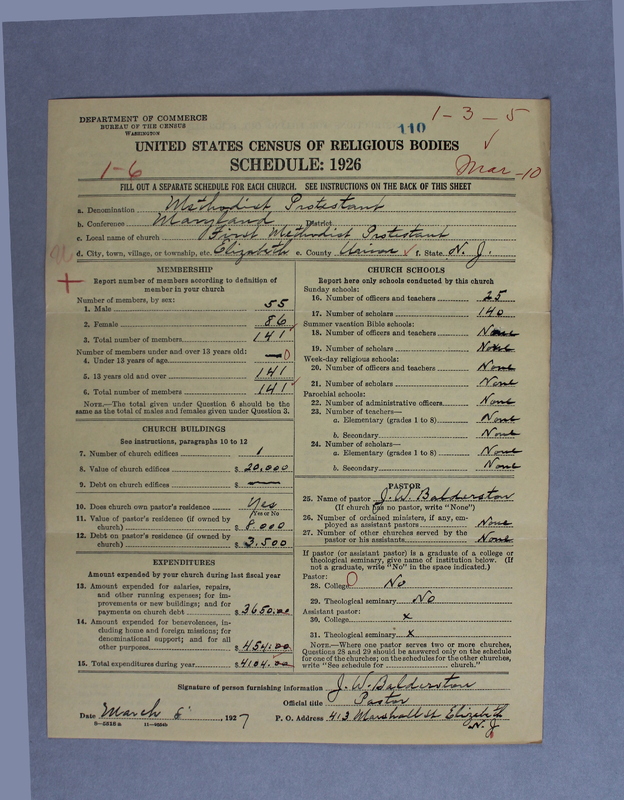 DEPARTMENT OF COMMERCE
BUREAU OF THE CENSUS
WASHINGTON
110
1-3-5
UNITED STATES CENSUS OF RELIGIOUS BODIES
1-6
SCHEDULE: 1926
Mar-10
FILL OUT A SEPARATE SCHEDULE FOR EACH CHURCH. SEE INSTRUCTIONS ON THE BACK OF THIS SHEET
a. Denomination Methodist Protestant
b. Conference Maryland District
c. Local name of church First Methodist Protestant
d. City, town, village, or township, etc. Elizabeth e. County Union f. State N. J.
MEMBERSHIP
Report number of members according to definition of
member in your church
Number of members, by sex:
1. Male 55
2. Female 86
3. Total number of members 141
Number of members under and over 13 years old:
4. Under 13 years of age — 0
5. 13 years old and over 141
6. Total number of members 141
NOTE.—The total given under Question 6 should be the
same as the total of males and females given under Question 3.
CHURCH BUILDINGS
See instructions, paragraphs 10 to 12
7. Number of church edifices 1
8. Value of church edifices $ 20,000
9. Debt on church edifices $ —
10. Does church own pastor's residence Yes
(Yes or No)
11. Value of pastor's residence (if owned by
church) $ 8,000
12. Debt on pastor's residence (if owned by
church) $ 3,500
EXPENDITURES
Amount expended by your church during last fiscal year
13. Amount expended for salaries, repairs,
and other running expenses; for im-
provements or new buildings; and for
payments on church debt $ 3650.00
14. Amount expended for benevolences, in-
cluding home and foreign missions; for
denominational support; and for all
other purposes $ 454.00
15. Total expenditures during year $ 4104.00
CHURCH SCHOOLS
Report here only schools conducted by this church
Sunday schools:
16. Number of officers and teachers 25
17. Number of scholars 140
Summer vacation Bible schools:
18. Number of officers and teachers None
19. Number of scholars None
Week-day religious schools:
20. Number of officers and teachers None
21. Number of scholars None
Parochial schools:
22. Number of administrative officers None
23. Number of teachers—
a. Elementary (grades 1 to 8) None
b. Secondary None
24. Number of scholars—
a. Elementary (grades 1 to 8) None
b. Secondary None
PASTOR
25. Name of pastor J. W. Balderston
(If church has no pastor, write "None")
26. Number of ordained ministers, if any, em-
ployed as assistant pastors None
27. Number of other churches served by the
pastor or his assistants None
If pastor (or assistant pastor) is a graduate of a college or
theological seminary, give name of institution below. (If
not a graduate, write "No" in the space indicated.)
Pastor:
28. College No
29. Theological seminary No
Assistant pastor:
30. College x
31. Theological seminary x
NOTE.—Where one pastor serves two or more churches,
Questions 28 and 29 should be answered only on the schedule
for one of the churches; on the schedules for the other churches,
write "See schedule for church."
Signature of person furnishing information J. W. Balderston
Official title Pastor
Date March 8, 1927 P. O. Address 413 Marshall St Elizabeth
N. J.
8-5828a 11-9204b